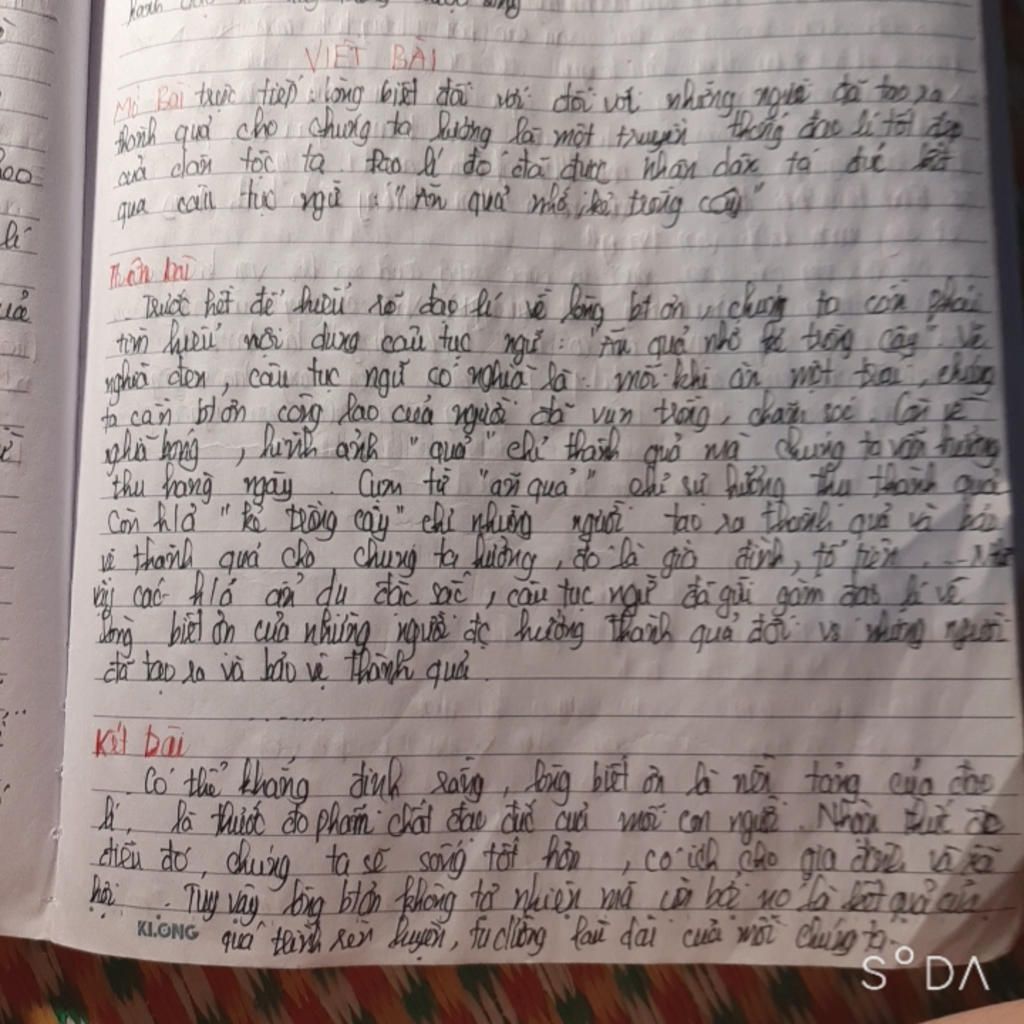 VIẾT BÀI
Mở Bài trực tiếp: lòng biết đối với đối với những người đã tạo ra
thành quả cho chúng ta hưởng là một truyền thống đạo lí tốt đẹp
của dân tộc ta Đạo lí đó đã được nhân dân ta đúc kết
qua câu tục ngữ : "Ăn quả nhớ kẻ trồng cây"
Thân bài
Trước hết để hiểu rõ đạo lí về lòng bt ơn, chúng ta cần phải
tìm hiểu nội dung câu tục ngữ : "Ăn quả nhớ kẻ trồng cây". Về
nghĩa đen, câu tục ngữ có nghĩa là: mỗi khi ăn một trái, chúng
ta cần bt ơn công lao của người đã vun trồng, chăm sóc. Còn về
nghĩa bóng, hình ảnh "quả" chỉ thành quả mà chúng ta vẫn hưởng
thụ hàng ngày. Cụm từ "ăn quả" chỉ sự hưởng thụ thành quả
Còn h/ả "kẻ trồng cây" chỉ những người tạo ra thành quả và bảo
vệ thành quả cho chúng ta hưởng, đó là gia đình, tổ tiên...
vậy các h/ả ẩn dụ đặc sắc, câu tục ngữ đã gửi gắm đạo lí về
lòng biết ơn của những người đc hưởng thành quả đối vs những người
đã tạo ra và bảo vệ thành quả.
Kết bài
Có thể khẳng định rằng, lòng biết ơn là nền tảng của đạo
lí, là thước đo phẩm chất đạo đức của mỗi con người. Nhận thức đc
điều đó, chúng ta sẽ sống tốt hơn, có ích cho gia đình và xã
hội. Tuy vậy, lòng bt ơn không tự nhiên mà có bởi nó là kết quả của
quá trình rèn luyện, tu dưỡng lâu dài của mỗi chúng ta.
KLONG
SODA